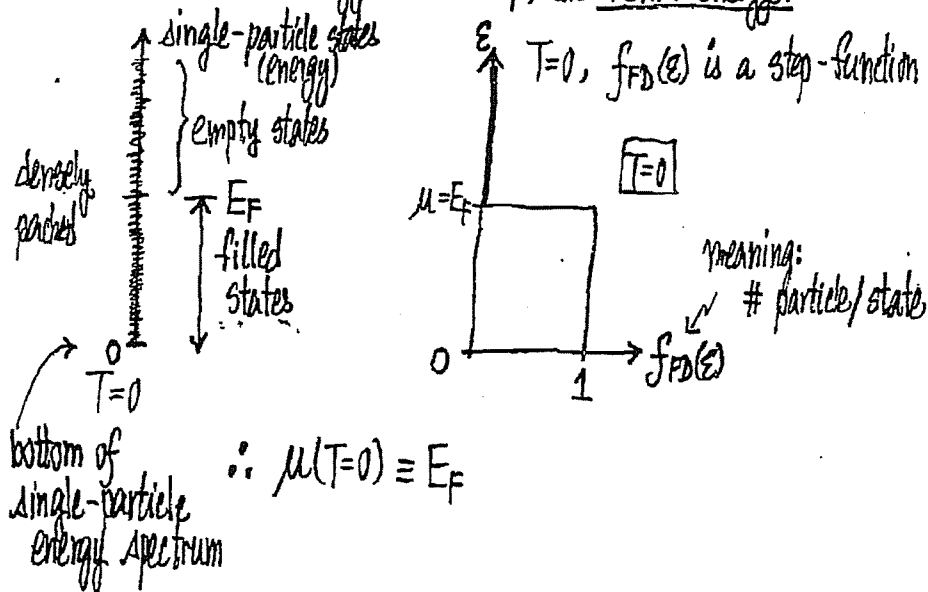 Fermi energy.
single-particle states
(energy)
empty states
densely
packed
E_F
filled
states
0
T=0
bottom of
single-particle
energy spectrum
∴ μ(T=0) ≡ E_F
ε
T=0, f_FD(ε) is a step-function
T=0
μ=E_F
meaning:
# particle/state
0
1
f_FD(ε)